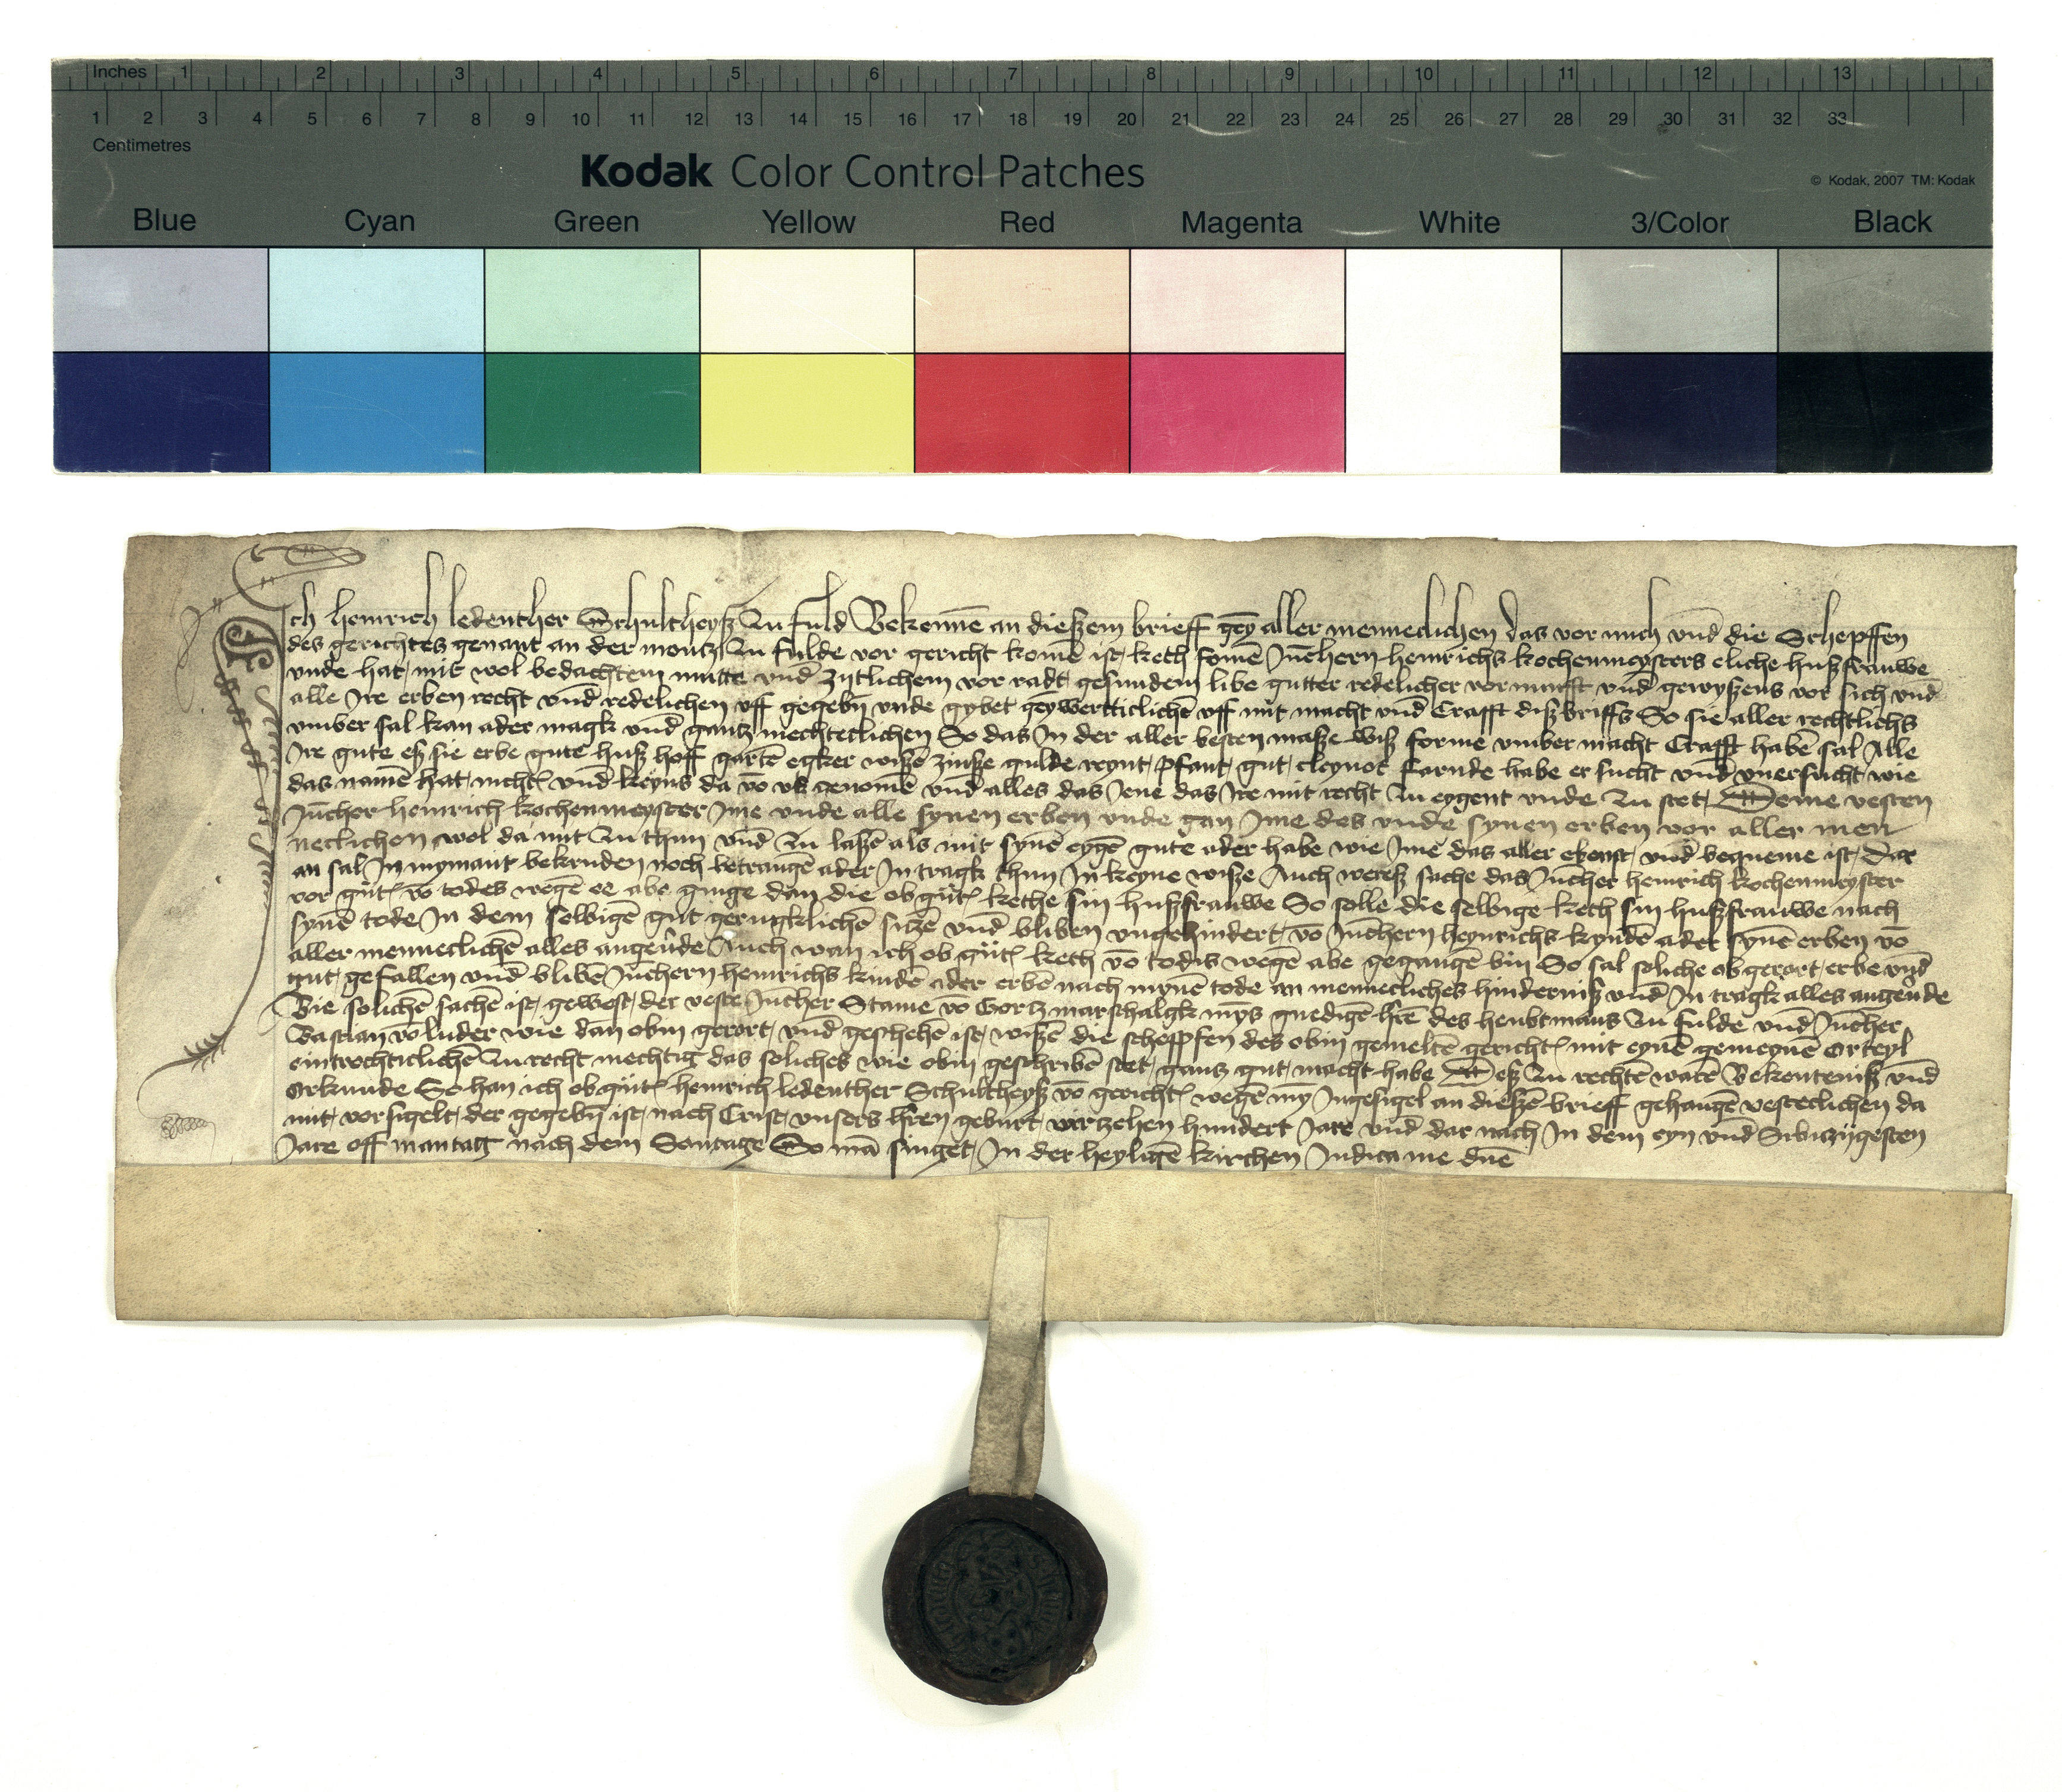 Inches 1 2 3 4 5 6 7 8 9 10 11 12 13
1 2 3 4 5 6 7 8 9 10 11 12 13 14 15 16 17 18 19 20 21 22 23 24 25 26 27 28 29 30 31 32 33
Centimetres
Kodak Color Control Patches
© Kodak, 2007 TM: Kodak
Blue Cyan Green Yellow Red Magenta White 3/Color Black
Ich heinrich ledenther Schultheyß zu fuld Bekenne an dießem brieff gey aller menneclichen das vor mich vnd die Schepffen
des gerichtes genant an der montz zu fulde vor gericht kome ist keth Juchern heinrichs kochenmeysters eliche hußfrauwe
vnde hat mit wol bedachtem mutte vnd zytlichem vor radt gesundem libe gutter redelicher vornunfft vnd gewyßens vor sich vnd
alle Ire erben recht vnd redelichen vff gegebn vnde gybet geywertticliche vff mit macht vnd Crafft diß briffs So sie aller rechtlichs
vmber sal kan ader magk vnd gantz mechteclichen So das In der aller besten maße wiß forme vmber macht Crafft habe sal Alle
Ire gute eß sie erbe gute huß hoff garte egker wiße zinße gulde reynt pfant gut cleynot farnde habe er sucht vnd vnersucht wie
das name hat nicht vnd keyns da vo vß genome vnd alles das Jene das Ire mit recht zu eygent vnde zu stet Deme vesten
Jucher heinrich kochenmeyster Ime vnde alle synen erben vnde gan Ime des vnde synen erben vor aller men
neclichen wol da mit zu thun vnd zu laße als mit syne eyge gute ader habe wie Ime das aller ebenst vnd bequeme ist Dar
an sal In nymant noch betrange ader In tragk thun In keyne wiße Auch wereß sache das Jucher heinrich kochenmeyster
vor gut vo todes wege ee abe ginge dan die ob gut kethe sin hußfrauwe So solle die selbige keth sin hußfrauwe nach
syne tode In dem selbige gut geruglkliche sitze vnd bliben vngehindert vo Juchern heynrichs kynde ader syne erben vo
aller mennecliche alles angeude Auch wan ich ob gut keth vo todis wege abe gegange bin So sal soliche ob gerort erbe vnd
gut gefallen vnd blibe Juchern heinrichs kinde ader erbe nach myne tode an mennecliches hinderniß vnd In tragk alles angeude
Bie soliche sache ist gewest der veste Jucher Stame vo Gortz marschalgk mys gnedige hre des heubtmans zu fulde vnd Jucher
Bastian vo luder wie dan obin gerort vnd geschehe ist wiße die scheppfen des obin gemelte gericht mit eyne gemeyne Orteyl
eintrechticliche zu recht mechtig das soliches wie obin geschribe stet gans gut macht habe Deß zu rechte ware Bekenteniß vnd
Orkunde So han ich ob gut heinrich ledenther Schultheyß vo gericht wege my Ingesigel an dieße brieff gehange vesteclichen da
mit vorsigelt der gegebn ist nach Crist vnsers hren geburt virzehen hundert Jare vnd dar nach In dem eyn vnd Sibitzigesten
Jare off mantag nach dem Sontage So ma singet In der heylige kirchen Judica me dne